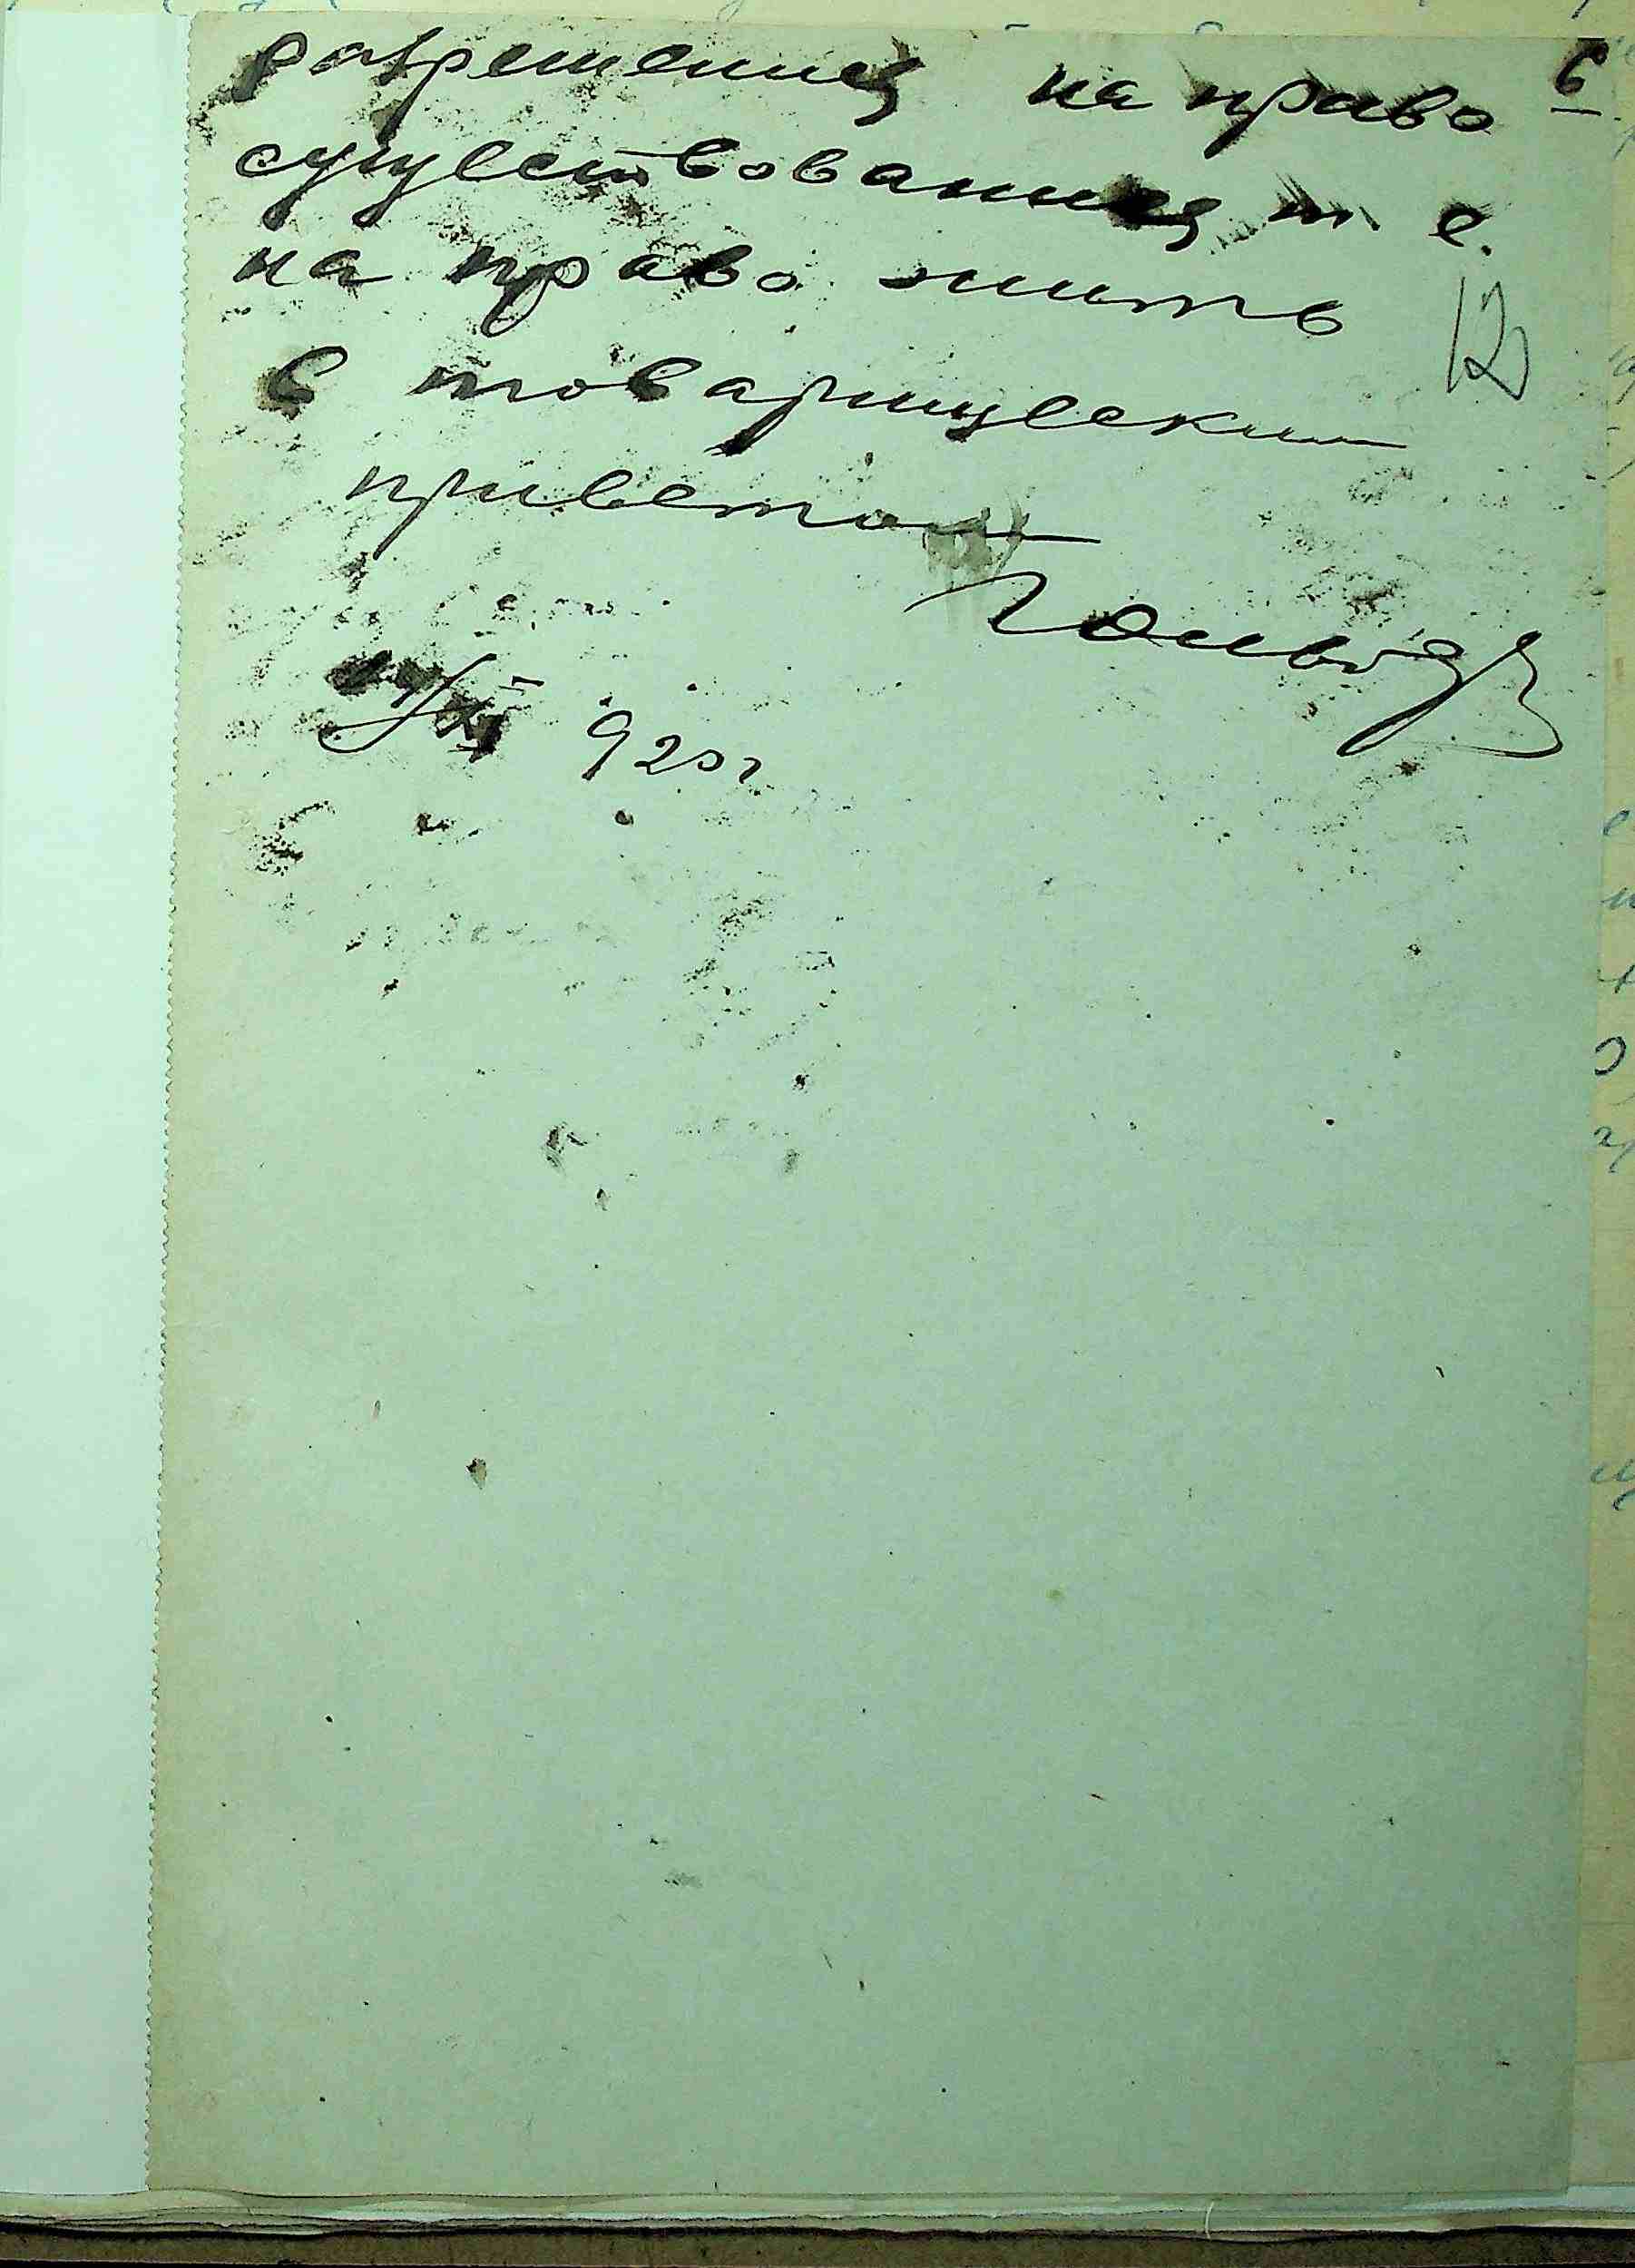 разрешения на право 6
существования т. е.
на право жить
12
с товарищеским
приветом
/XI 920 г